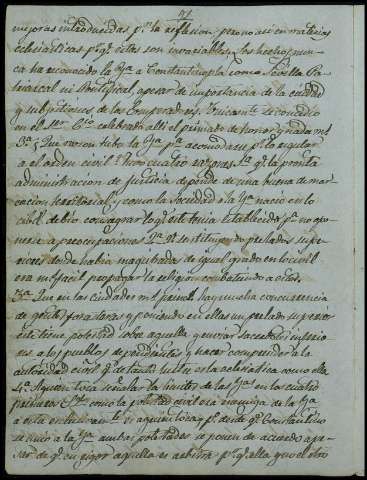 mejoras introducidas pr. la reflesion, pero no asi en materias
eclesiasticas pr. qe. estas son invariables. los hechos nun-
ca ha reconocido la Ya. a Constantinopla como Sevilla Pa-
triarcal ni Pontifical, apesar de importancia de la ciudad
y subpeticiones de los Emperadores. Unicamte. se concedio
en el Cio. celebrado alli el primado de honor y nada mas
3a. ¿Que razon tubo la Ya. pa. acomodarse pr. lo regular
a el orden civil? Por cuatro razones. 1a. qe. la pronta
administracion de justicia depende de una buena demar-
cacion territorial, y como la sociedad a la Ya. nacio en lo
civil debio consagrar lo qe. este tenia establecido pa. no opo-
nerse a preocupaciones. 2a. Qe. instituyendo prelados supe-
riores donde habia magistrados de igual grado en lo civil
era mas facil propagar la religion combatiendo a estos.
3a. Que en las ciudades mas princip. hay mucha concurrencia
de gentes forasteras y poniendo en ellas un prelado superior
este tiene potestad sobre aquella y enviar sacerdotes inferio-
res a los pueblos dependientes y hacer comprender a la
autoridad civil qe. de tanta es la eclesiastica como ella
4a. A quien toca señalar los limites de las Yas. en los cuatro
primeros como la potestad civil era enemiga de la Ya.
a esta esclusivamte. a quien toca y pr. desde qe. Constantino
se unio a la Ya. ambas potestades se ponen de acuerdo ape-
sar de qe. en rigor aquella es arbitra pr. qe. ella y no el otro